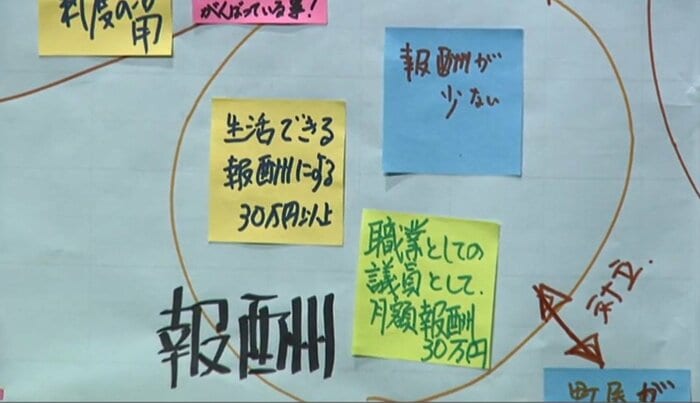 制度の活用
がんばっている事!
報酬が
少ない
生活できる
報酬にする
30万円以上
職業としての
議員として、
月額報酬
30万円
報酬
対立.
町民が